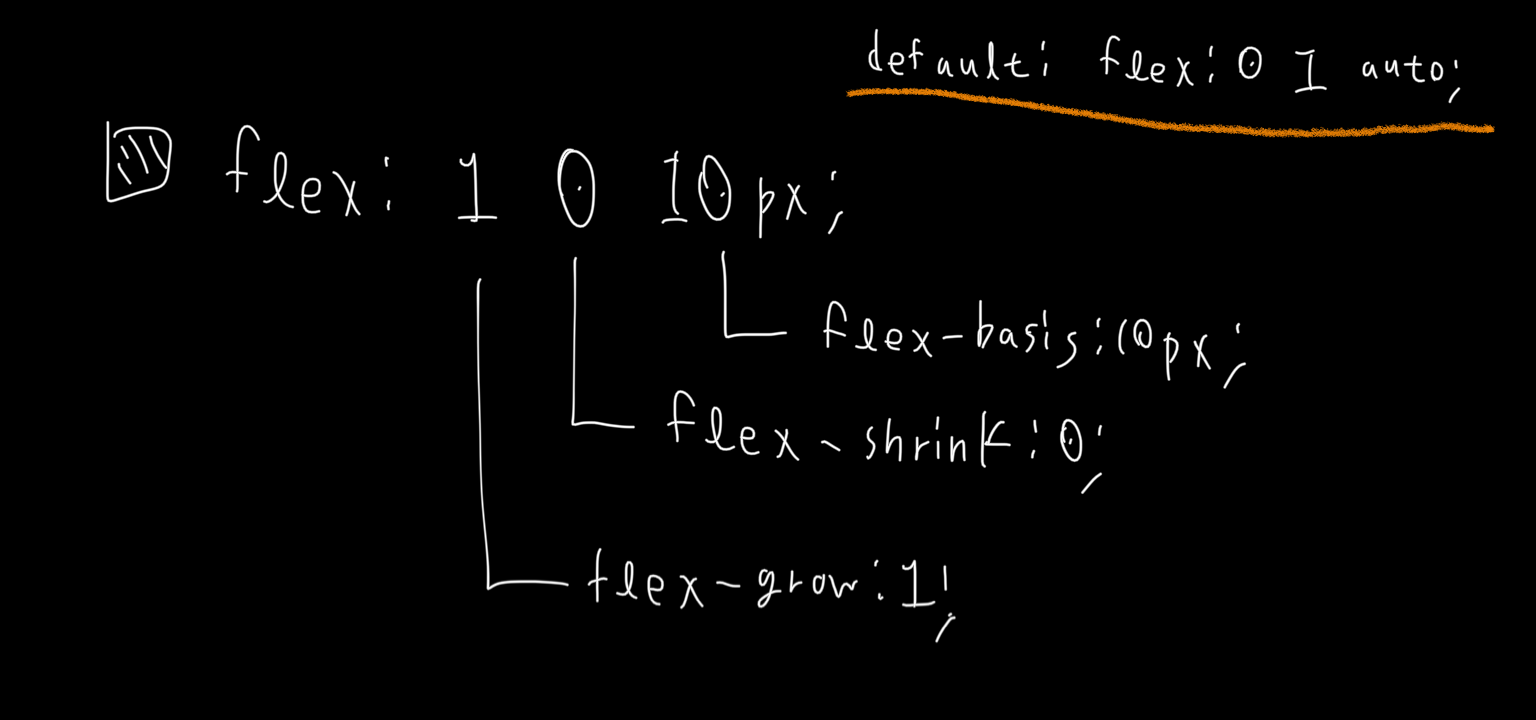 default: flex: 0 1 auto;
flex: 1 0 10px;
flex-basis: 10px;
flex-shrink: 0;
flex-grow: 1;